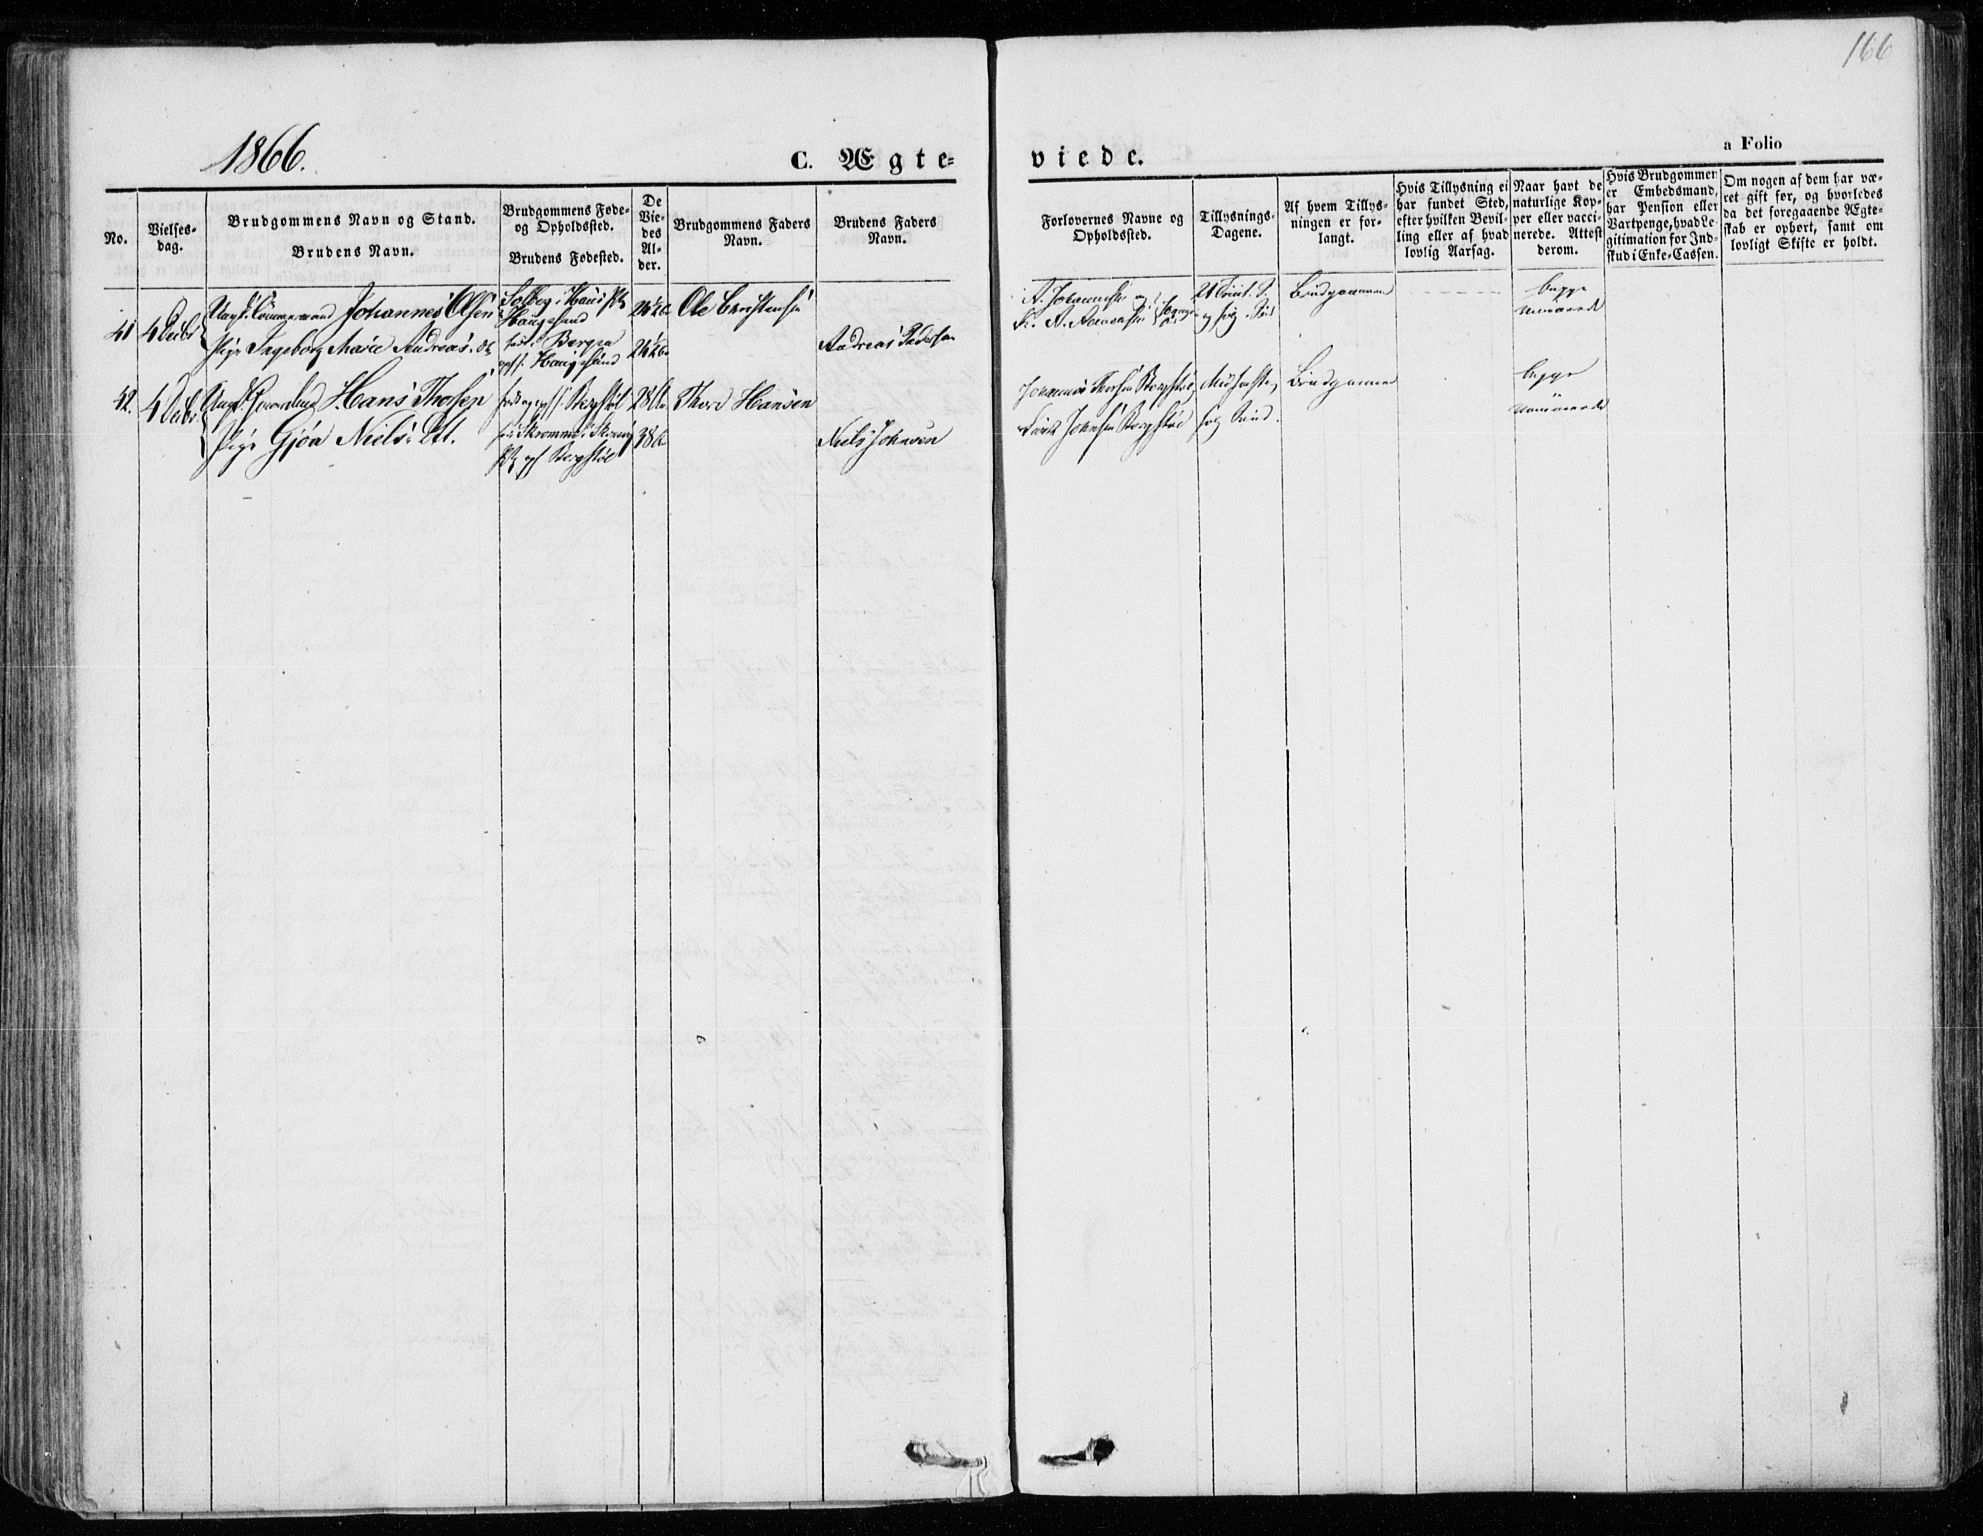 166
1866.
C. Ægte-
viede.
a Folio
No.
Vielses-
dag.
Brudgommens Navn og Stand.
Brudens Navn.
Brudgommens Føde-
og Opholdssted.
Brudens Fødested.
De
Vie-
des
Al-
der.
Brudgommens Faders
Navn.
Brudens Faders
Navn.
Forlovernes Navne og
Opholdssted.
Tillysnings-
Dagene.
Af hvem Tillys-
ningen er for-
langt.
Hvis Tillysning ei
har fundet Sted,
efter hvilken Bevil-
ling eller af hvad
lovlig Aarsag.
Naar havt de
naturlige Kop-
per eller vacci-
nerede. Attest
derom.
Hvis Brudgommen
er Embedsmand,
har Pension eller
Vartpenge, hvad Le-
gitimation for Ind-
skud i Enke-Cassen.
Om nogen af dem har væ-
ret gift før, og hvorledes
da det foregaaende Ægte-
skab er ophørt, samt om
lovligt Skifte er holdt.
41
4 Decbr
Ungk. Tømmermand Johannes Olsen
Pige Ingeborg Marie Andreas. Dtr
Solberg i Haus
Haugesund
Bergen
Haugesund
24½
24½
Ole Christensen
Andreas Pedersen
A. Johannesen og
21 Trinit. S.
og
Brudgommen
begge
vaccinerede
42.
4 Decbr.
Ungk. Hans Thorsen
Pige Gjøa Niels. Dtr.
Bergstøl
Bergstøl
28
38
Thore Hansen
Niels Johnsen
Johannes Thorsen Bergstøl,
Johnsen Bergstøl
Brudgommen
begge
vaccinerede